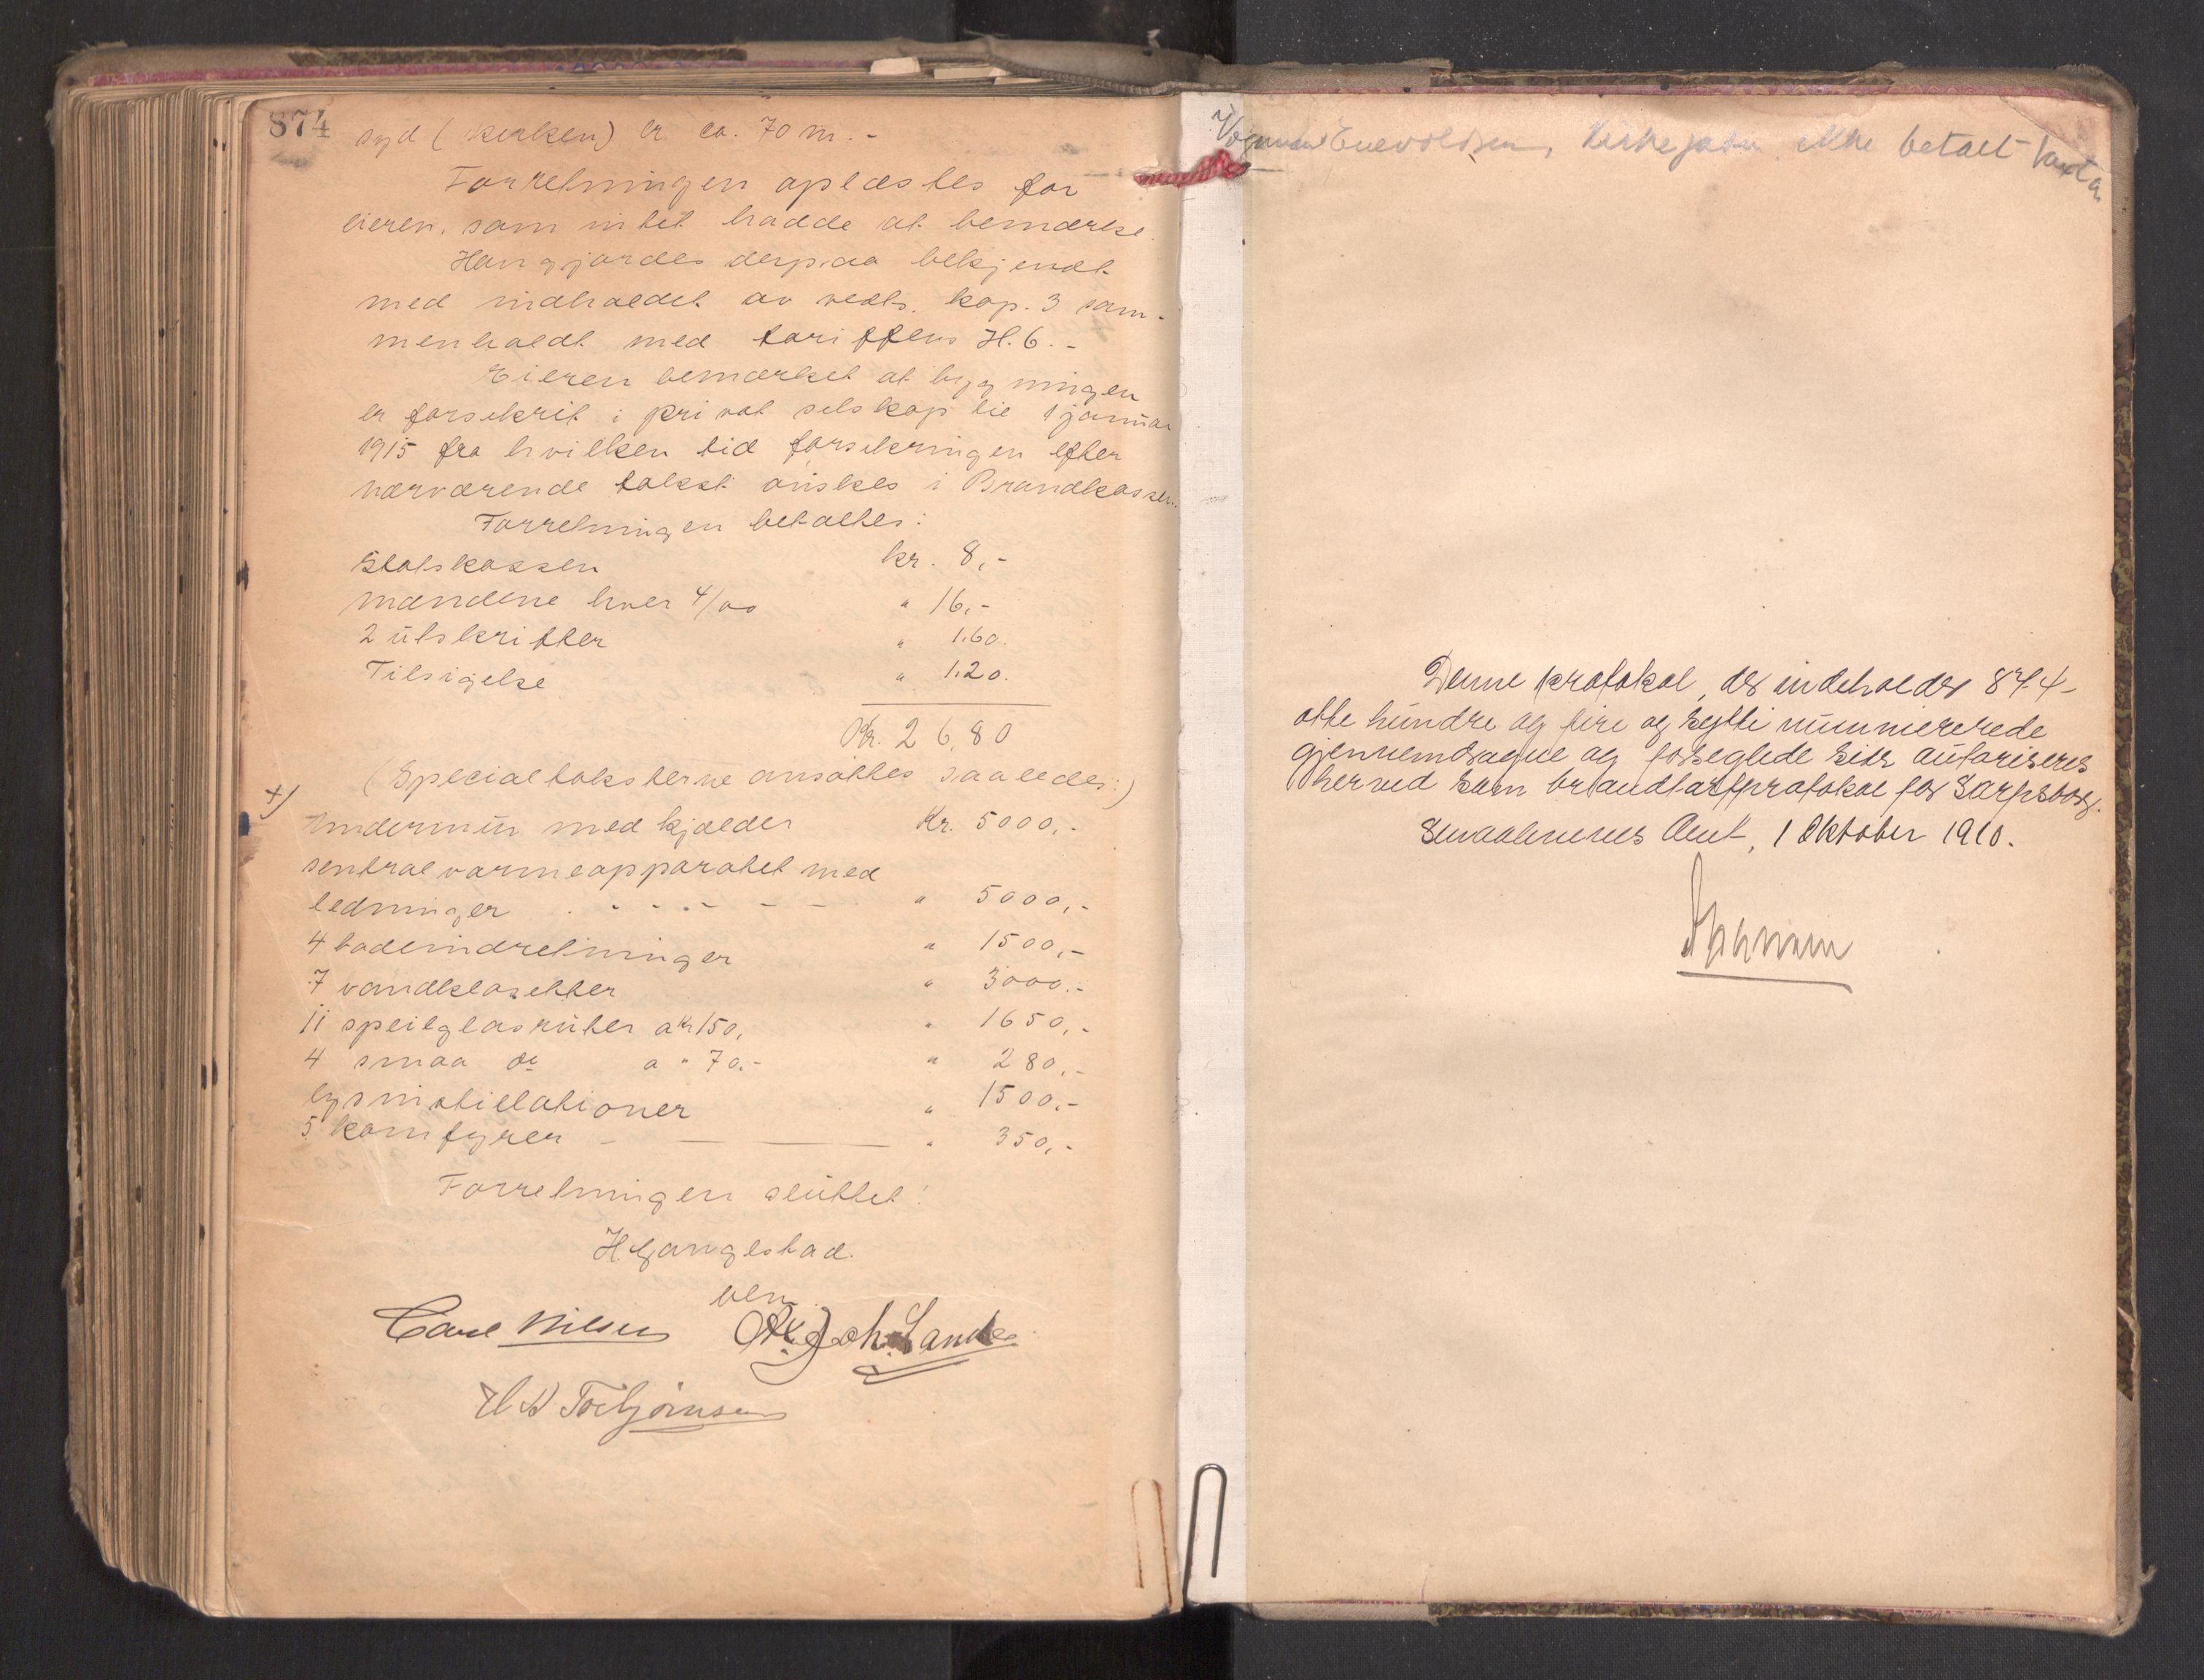 874
syd (kirken) er ca. 70 m. -
Forretningen oplæstes for
eieren, som intet hadde at bemærke.
Han gjordes derpaa bekjendt
med indholdet av vedts. kap. 3 sam-
menholdt med tariffens H. 6. -
Eieren bemærket at bygningen
er forsikrit i privat selskap til 1 januar
1915 fra hvilken tid forsikringen efter
nærværende takst ønskes i Brandkassen.
Forretningen betaltes:
Statskassen kr. 8,-
mændene hver 4/00 " 16,-
2 utskrifter " 1.60.
Tilsigelse " 1.20.
Kr. 26,80
(Specialtaksterne ansattes saaledes:)
+) Undermur med kjælder Kr. 5000,-
sentralvarmeapparatet med
ledninger . - - - - - " 5000,-
4 badeindretninger " 1500,-
7 vandklosetter " 3000.-
11 speilglasruter a kr 150, " 1650,-
4 smaa do a " 70.- " 280,-
lysinstallationer " 1500.-
5 komfyrer - " 350,-
Forretningen sluttet!
H. Gangestad.
Carl Nilsen Joh. Lande
Torbjørnsen
Enevoldsen, Kirkegaten ikke betalt taxten
Denne protokol, der indeholder 874-
otte hundre og fire og sytti nummererede
gjennemdragne og forseglede sider autoriseres
herved som brandtaxtprotokol for Sarpsborg.
Smaalenenes Amt, 1 Oktober 1910.